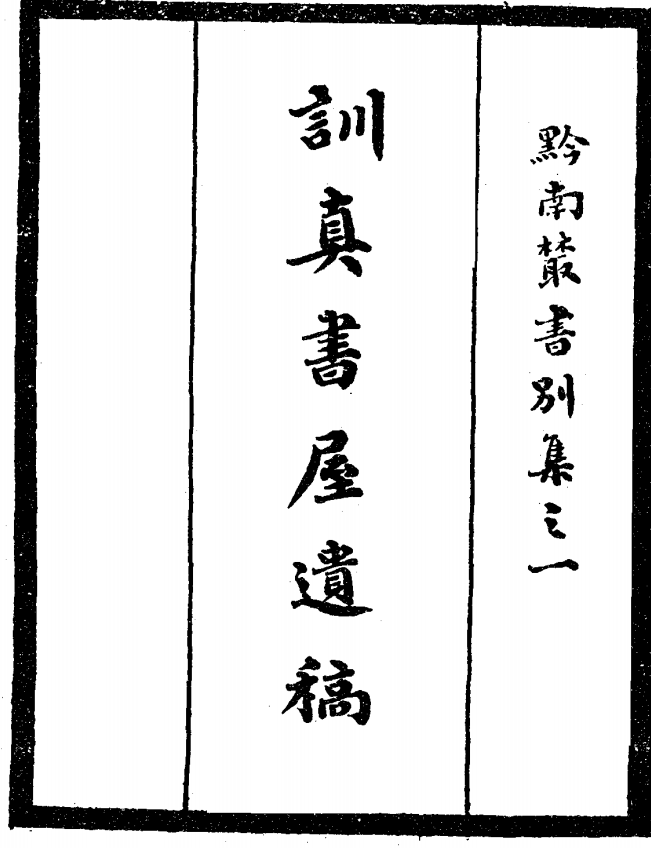 黔南叢書別集之一
訓真書屋遺稿